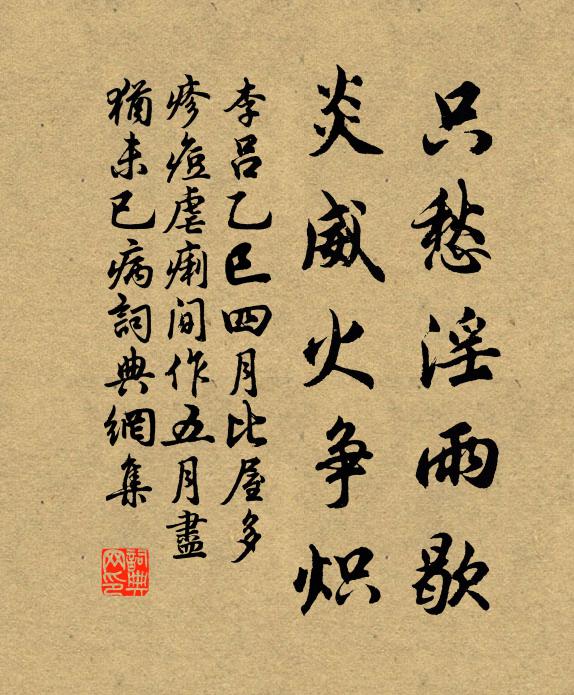 只愁淫雨歇
炎威火争炽
李吕乙巳四月比屋多
疹痘虐痢间作五月盡
猶未已病詞典網集
詞典网印